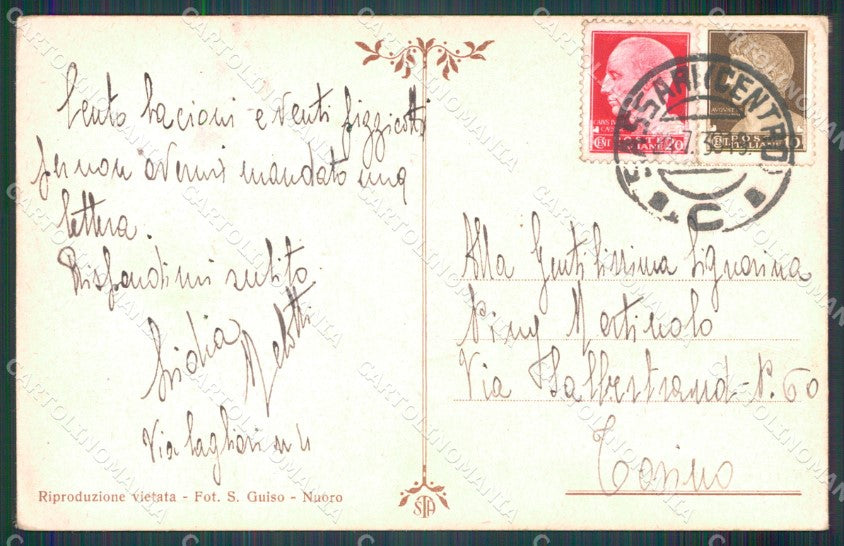 Cento bacioni e venti pizzicotti
per non avermi mandato una
lettera.
Rispondimi subito.
Lidia
Via Cagliari n 11
Riproduzione vietata - Fot. S. Guiso - Nuoro
STA
POSTE ITALIANE 20
POSTE ITALIANE 10
SASSARI (CENTRO)
C
Alla Gentilissima Signorina
Piny Martinolo
Via N. 60
Torino
CARTOLINOMANIA